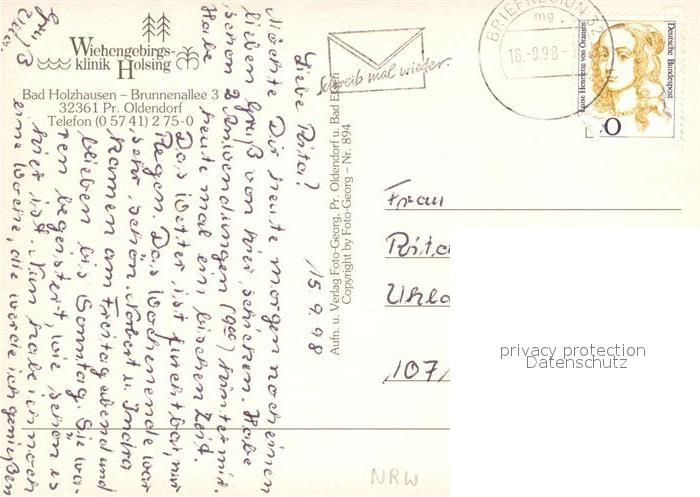 Wiehengebirgs-
klinik Holsing
Bad Holzhausen – Brunnenallee 3
32361 Pr. Oldendorf
Telefon (0 57 41) 2 75-0
15.9.98
Liebe Rita!
Möchte Dir heute morgen noch einen
lieben Gruß von hier schicken. Habe
schon 2 Anwendungen (9⁰⁰) hinter mir.
Habe heute mal ein bischen Zeit.
Das Wetter ist furchtbar, nur
Regen. Das Wochenende war
sehr schön. Norbert u. Indra
kamen am Freitag abend und
blieben bis Sonntag. Sie wa-
ren begeistert, wie schön es
hier ist. Nun habe ich noch
eine Woche, die werde ich genießen
Gruß
Aufn. u. Verlag Foto-Georg, Pr. Oldendorf u. Bad Essen
Copyright by Foto-Georg – Nr. 894
Schreib mal wieder.
BRIEFREGION 32
mg
16.-9.98-
Luise Henriette von Oranien
Deutsche Bundespost
Frau
Rita
Uhla
107/
NRW
privacy protection
Datenschutz